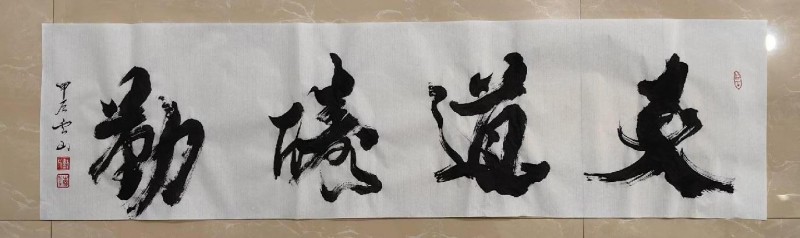 天道酬勤
甲辰雲山